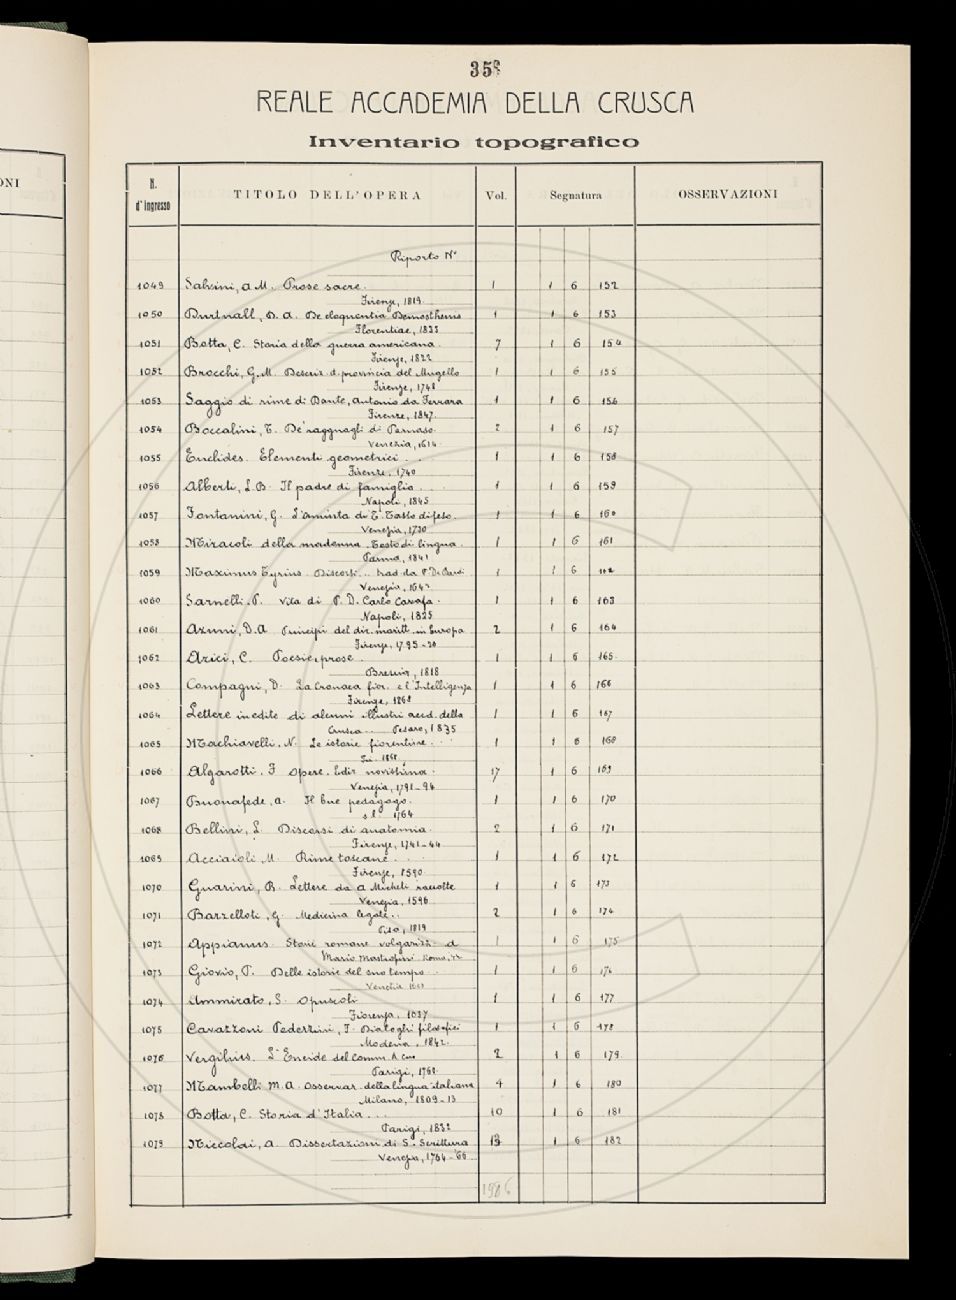 ONI
35
REALE ACCADEMIA DELLA CRUSCA
Inventario topografico
N. d'Ingresso TITOLO DELL'OPERA Vol. Segnatura OSSERVAZIONI
Riporto N°
1049 Salvini, A M. Prose sacre. 1 1 6 152
Firenze, 1819.
1050 D. A. De eloquentia Demosthenis 1 1 6 153
Florentiae, 1835
1051 Botta, C. Storia della guerra americana. 7 1 6 154
Firenze, 1822
1052 Brocchi, G. M. Descriz. d. provincia del Mugello 1 1 6 155
Firenze, 1748
1053 Saggio di rime di Dante, Antonio da Ferrara 1 1 6 156
Firenze, 1847.
1054 Boccalini, T. De' ragguagli di Parnaso. 2 1 6 157
Venezia, 1614.
1055 Euclides. Elementi geometrici . . 1 1 6 158
Firenze, 1740
1056 Alberti, L. B. Il padre di famiglia . . . 1 1 6 159
Napoli, 1845
1057 Fontanini, G. L'Aminta di T. Tasso difeso. 1 1 6 160
Venezia, 1730
1058 Miracoli della madonna. Testo di lingua. 1 1 6 161
Parma, 1841
1059 Maximus Tyrius. Discorsi .. trad. da P. De Bardi 1 1 6 162
Venezia, 1642
1060 Sarnelli, P. Vita di P. D. Carlo Carafa. 1 1 6 163
Napoli, 1835
1061 Azuni, D. A. Principi del dir. maritt. in Europa 2 1 6 164
Firenze, 1795-
1062 Arici, C. Poesie, prose . 1 1 6 165
Brescia, 1818
1063 Compagni, D. La Cronaca fior. e l'Intelligenza 1 1 6 166
Firenze, 1868
1064 Lettere inedite di alcuni illustri accad. della 1 1 6 167
Crusca . . Pesaro, 1835
1065 Machiavelli, N. Le istorie fiorentine. . . 1 1 6 168
Ivi 1868
1066 Algarotti, F. Opere. Ediz. novissima. 17 1 6 169
Venezia, 1791-94
1067 Buonafede, A. Il bue pedagogo. 1 1 6 170
s. l. 1764
1068 Bellini, L. Discorsi di anatomia. 2 1 6 171
Firenze, 1741-44
1069 Acciaioli M. Rime toscane . . . 1 1 6 172
Firenze, 1590
1070 Guarini, B. Lettere da A. Michele raccolte 1 1 6 173
Venezia, 1596
1071 Barzelloti, G. Medicina legale . . 2 1 6 174
Pisa, 1819
1072 Appianus. Storie romane volgarizz. d. 1 1 6 175
Marco Mastrofini Roma,
1073 Giovio, P. Delle istorie del suo tempo . . 1 1 6 176
Venezia
1074 Ammirato, S. Opuscoli 1 1 6 177
Fiorenza, 1637
1075 Cavazzoni Pederzini, F. Dialoghi filosofici 1 1 6 178
Modena, 1842.
1076 Vergilius. L'Eneide del Comm. A. Caro 2 1 6 179
Parigi, 1760
1077 Mambelli M. A. Osservaz. della lingua italiana 4 1 6 180
Milano, 1809-13
1078 Botta, C. Storia d'Italia . . . 10 1 6 181
Parigi, 1832
1079 Niccolai, A. Dissertazioni di S. Scrittura 13 1 6 182
Venezia, 1764-66